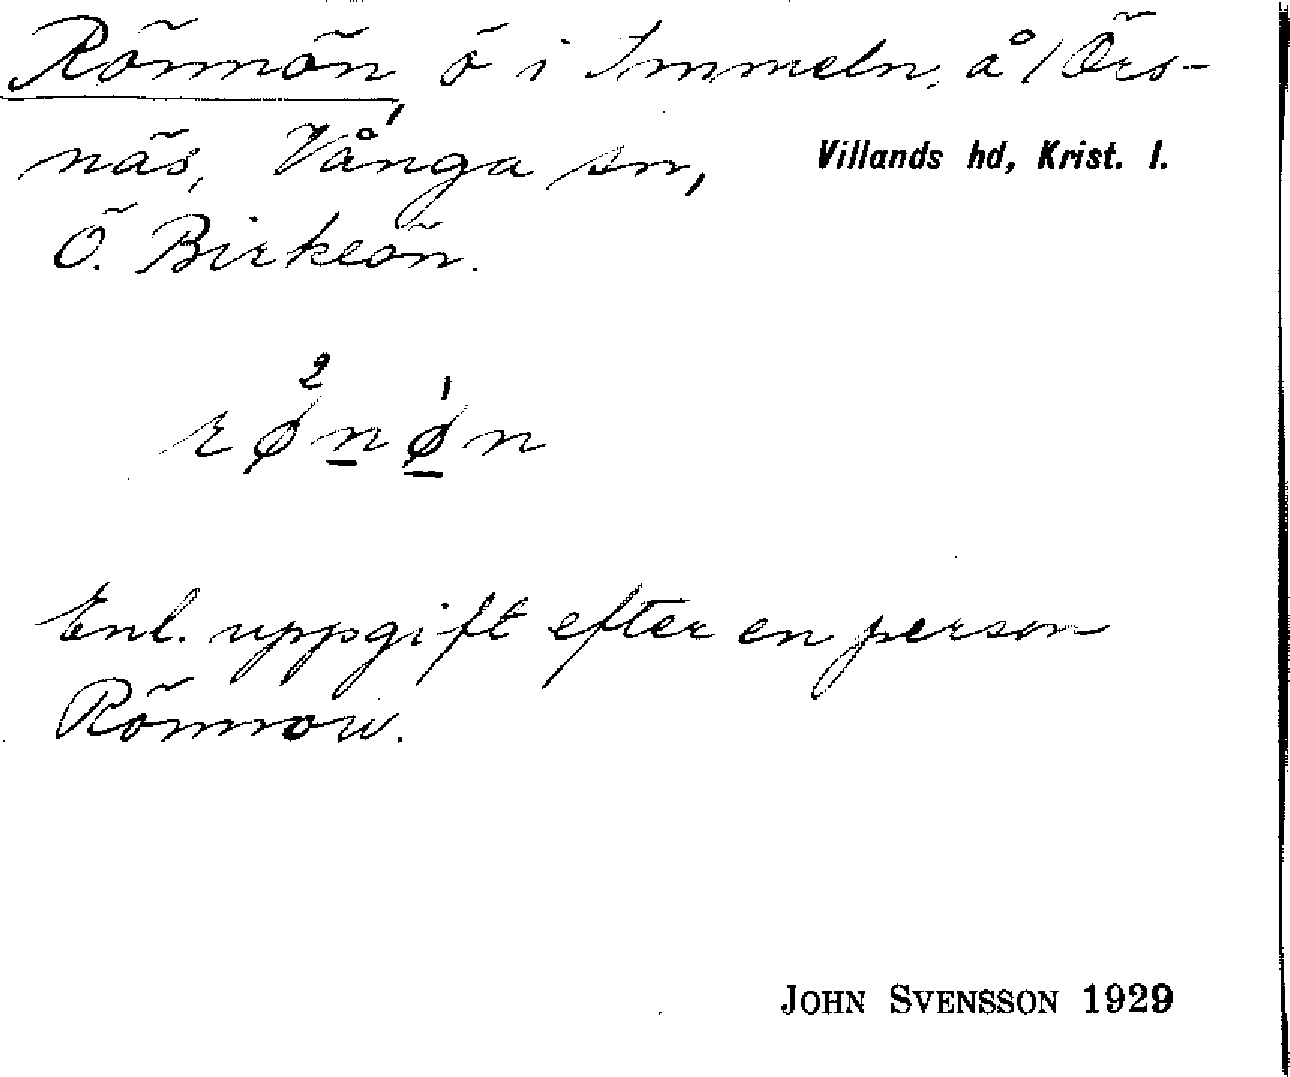 Rönnön, ö i Immeln, å/Örs-
näs, Vånga sn, Villands hd, Krist. l.
Ö. Birkeön.
2 1
rønøn
Enl. uppgift efter en person
Rönnow.
JOHN SVENSSON 1929